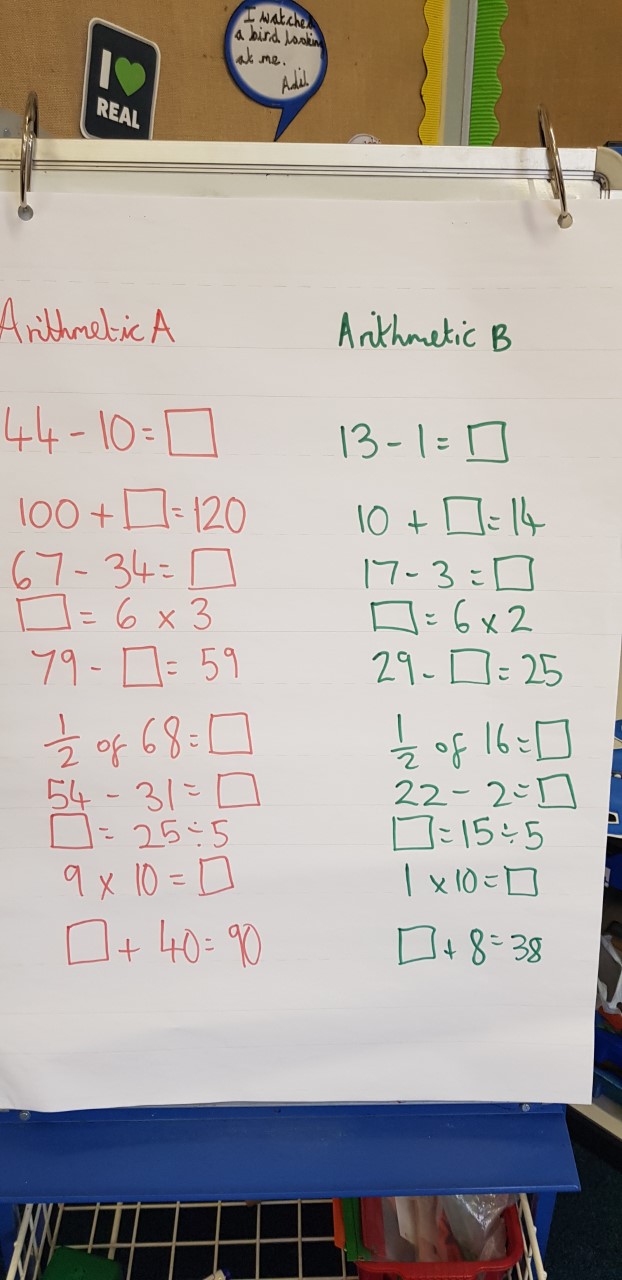 I ♥
REAL
I watched
a bird looking
at me.
Adil
Arithmetic A
44 - 10 = □
100 + □ = 120
67 - 34 = □
□ = 6 x 3
79 - □ = 59
1/2 of 68 = □
54 - 31 = □
□ = 25 ÷ 5
9 x 10 = □
□ + 40 = 90
Arithmetic B
13 - 1 = □
10 + □ = 14
17 - 3 = □
□ = 6 x 2
29 - □ = 25
1/2 of 16 = □
22 - 2 = □
□ = 15 ÷ 5
1 x 10 = □
□ + 8 = 38